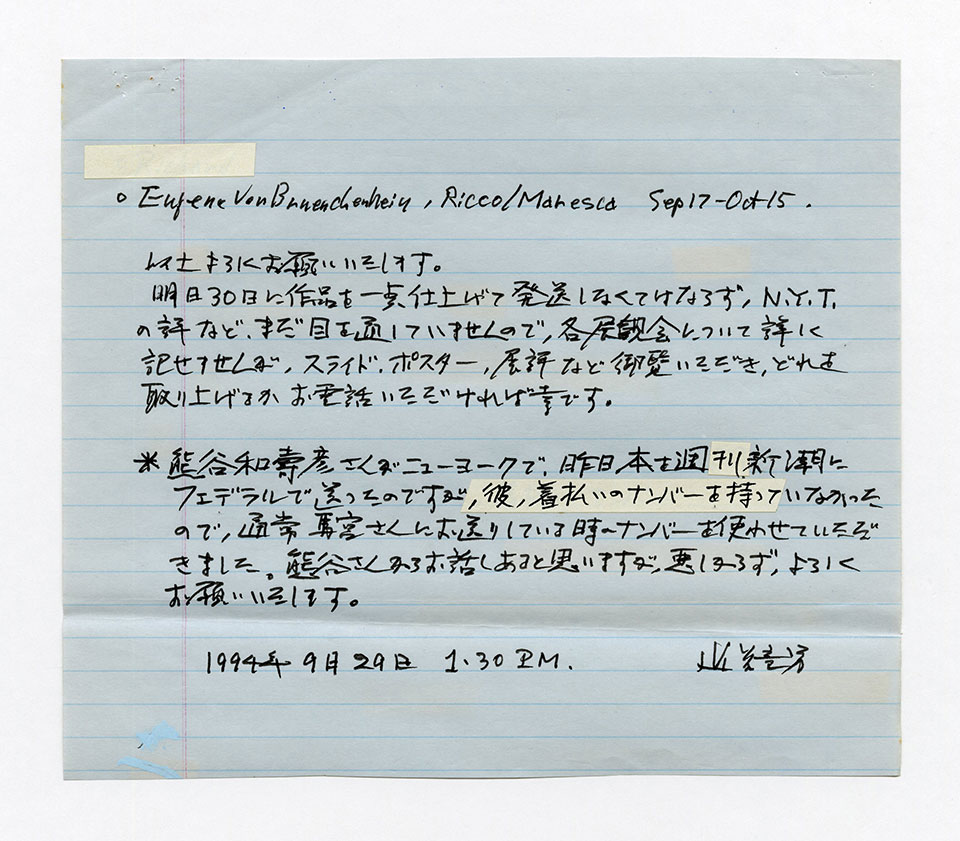 ○ Eugene Von Bruenchenhein, Ricco/Maresca Sep 17-Oct 15.
以上よろしくお願いいたします。
明日30日に作品を一点仕上げて発送しなくてはならず, N.Y.T.
の評など、まだ目を通していませんので, 各展覧会について詳しく
記せませんが, スライド、ポスター, 展評など御覧いただき, どれを
取り上げるかお電話いただければ幸です。
* 熊谷和壽彦さんがニューヨークで、昨日本を週刊新潮に
フェデラルで送ったのですが, 彼, 着払いのナンバーを持っていなかった
ので, 通常 さんにお送りしている時のナンバーを使わせていただ
きました。熊谷さんからお話しあると思いますが, 悪しからず, よろしく
お願いいたします。
1994年 9月29日 1.30 P.M.